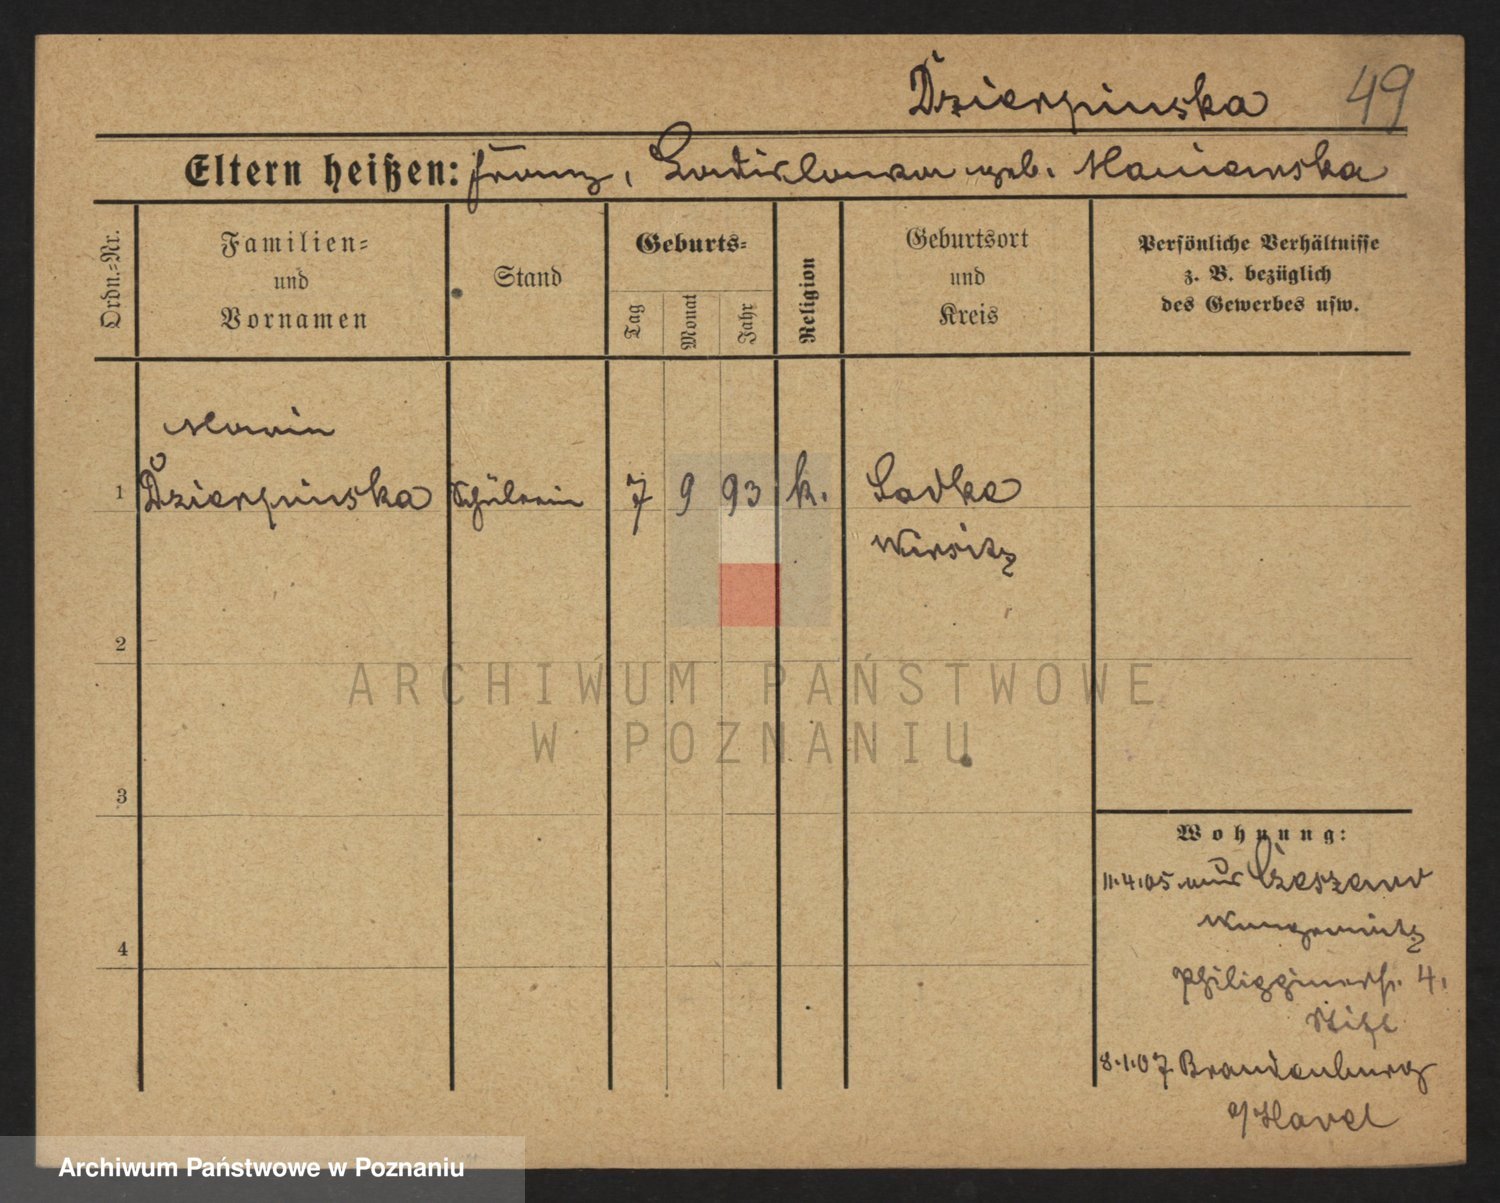 Dzierpinska 49
Eltern heißen: Franz, Ladislawa geb. Maniewska
Ordn.-Nr.
Familien-
und
Vornamen
Stand
Geburts-
Tag
Monat
Jahr
Religion
Geburtsort
und
Kreis
Persönliche Verhältnisse
z. B. bezüglich
des Gewerbes usw.
Marie
1 Dzierpinska Schülerin 7 9 93 k. Sadke
Wirsitz
2
3
4
Wohnung:
11.4.05 aus
Wongrowitz
Philippinerstr. 4.
Stift
8.1.07 Brandenburg
a/Havel
ARCHIWUM PAŃSTWOWE
W POZNANIU
Archiwum Państwowe w Poznaniu